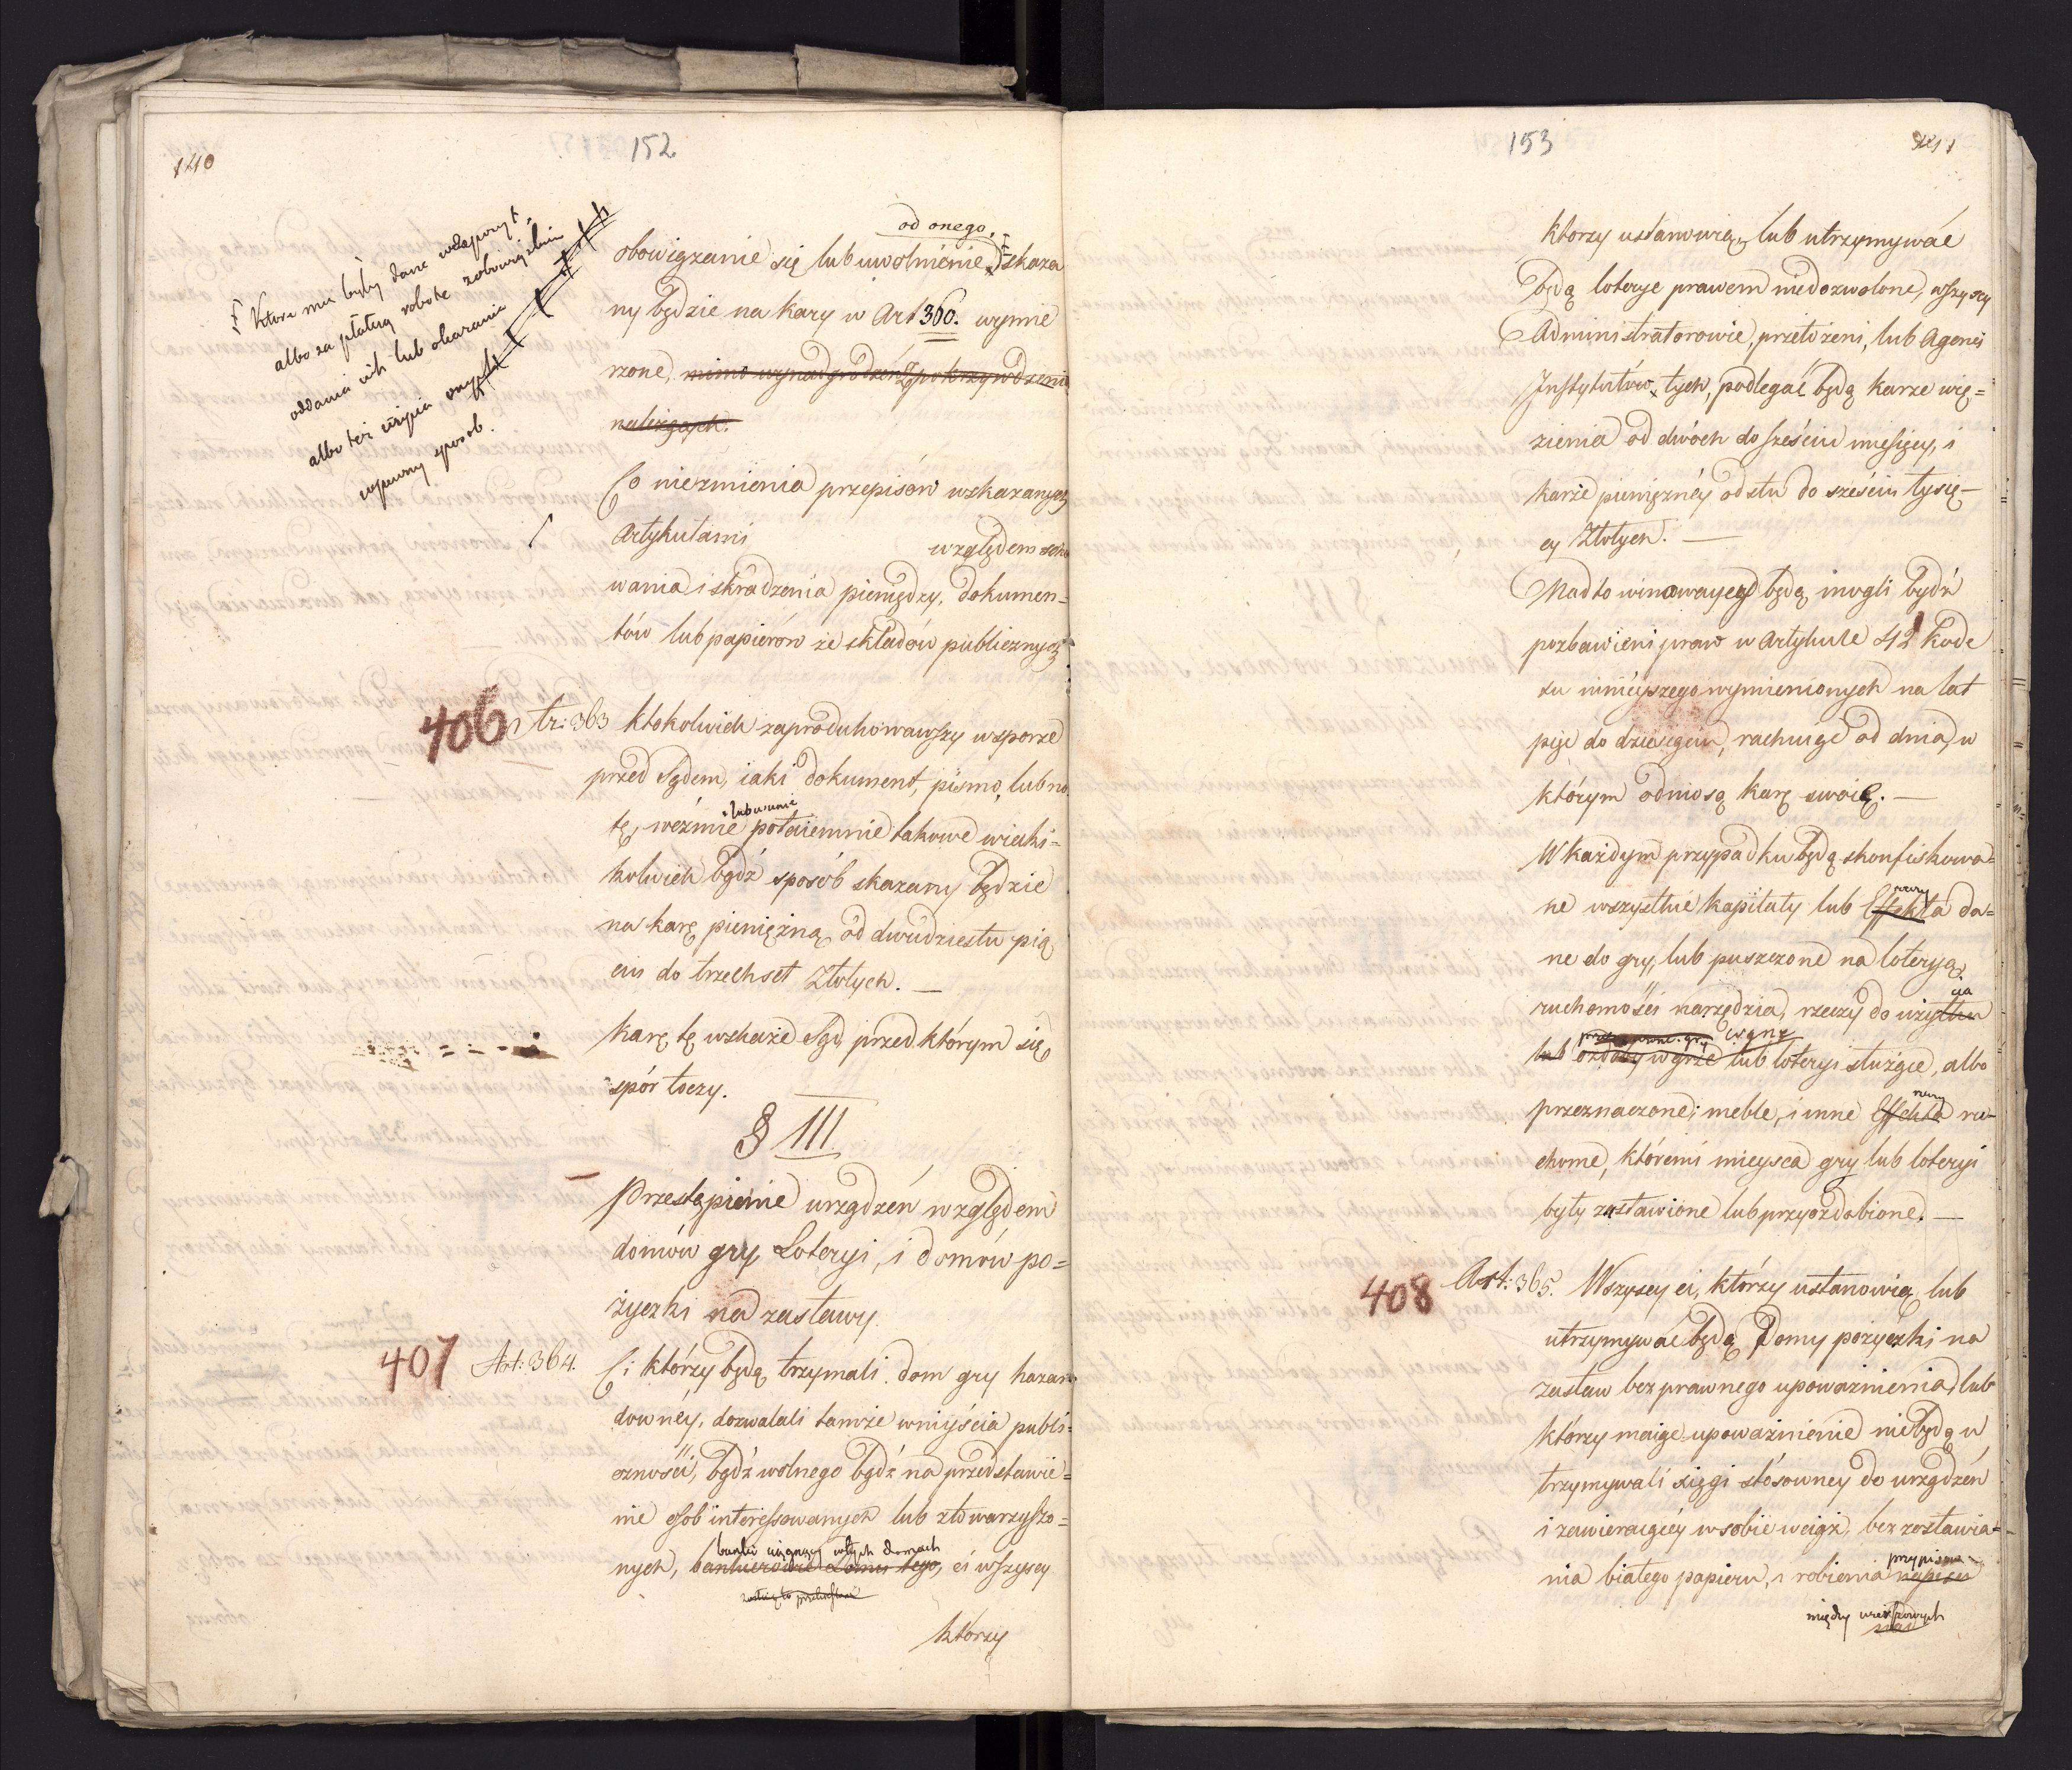 140
152
ƒ Które mu były dane w depozyt
albo za płatną robotę z obowiązkiem
oddania ich lub okazania
albo też użycia onych
w pewny sposób.
od onego.
obowiązanie się lub uwolnienie, skaza
ny będzie na kary w Art 360. wymie
rzone, mimo wynadgrodzeń pokrzywdzeniu
należących.
Co niezmienia przepisów wskazanych
Artykułami względem scho
wania i skradzenia pieniędzy, dokumen=
tów lub papierów ze składów publicznych
406 Art: 363 Ktokolwiek zaprodukowawszy w sporze
przed Sądem, iaki dokument, pismo, lub no
lub usunie
tę, weźmie potaiemnie takowe w iaki=
kolwiek bądź sposób skazany będzie
na karę pieniężną od dwudziestu pię
ciu do trzechset Złotych. —
Karę tę wskaże Sąd przed którym się
spór toczy.
§ III
Przestąpienie urządzeń względem
domów gry, Loteryi, i domów po=
życzki na zastawy.
407 Art: 364. Ci którzy będą trzymali dom gry hazar
downéy, dozwalali tamże wniyścia publi=
czności, bądź wolnego bądź na przedstawie=
nie osób interessowanych lub ztowarzyszo=
banki ciągnący w tych domach
nych, bankierowie domu tego, ci wszyscy
którzy
153
141
którzy ustanowią, lub utrzymywać
będą loterye prawem niedozwolone, wszyscy
Administratorowie, przełożeni, lub Agenci
Instytutów tych, podlegać będą karze wię=
zienia od dwóch do sześciu miesięcy, i
karze pieniężnéy od stu do sześciu tysię—
cy Złotych. —
Nadto winowaycy będą mogli bydź
pozbawieni praw w Artykule 42 Kode
xu ninieyszego wymienionych na lat
pięć do dziesięciu, rachuiąc od dnia, w
którym odniosą karę swoię. —
W każdym przypadku będą skonfiskowa=
rzeczy
ne wszystkie kapitały lub Effekta da=
ne do gry, lub puszczone na loteryą.
cia
ruchomości narzędzia, rzeczy do użytku
w grze
lub ozdoby w grze lub loteryi służące, albo
rzeczy
przeznaczone; meble, i inne Effekta ru=
chome, któremi mieysca gry lub loteryi
były zastawione lub przyozdobione. —
408 Art: 365. Wszyscy ci, którzy ustanowią lub
utrzymywać będą Domy pożyczki na
zastaw bez prawnego upoważnienia, lub
którzy maiąc upoważnienie nie będą u
trzymywali xięgi stosowney do urządzeń
i zawieraiącéy w sobie wciąż, bez zostawia=
przypisów
nia białego papieru, i robienia napisu
między wierszowych